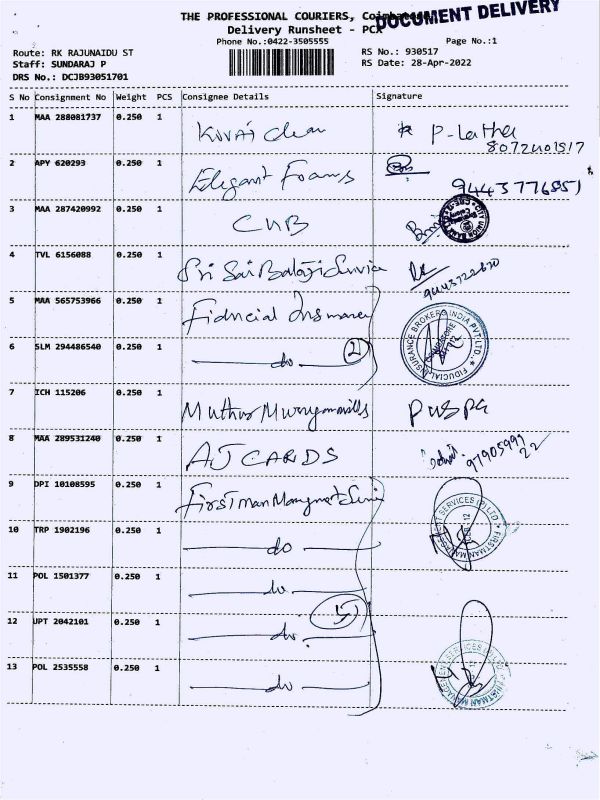 THE PROFESSIONAL COURIERS, Coimbatore
DOCUMENT DELIVERY
Delivery Runsheet - PCX
Phone No.:0422-3505555
Page No.:1
Route: RK RAJUNAIDU ST
RS No.: 930517
Staff: SUNDARAJ P
RS Date: 28-Apr-2022
DRS No.: DCJB93051701
S No Consignment No Weight PCS Consignee Details Signature
1 MAA 288081737 0.250 1 Kovai Clean P-Latha
8072401517
2 APY 620293 0.250 1 Elegant Foams
9443776851
3 MAA 287420992 0.250 1 CUB CITY UNION BANK
4 TVL 6156088 0.250 1 Sri Sai Balaji Service
9443722620
5 MAA 565753966 0.250 1 Fiducial Insurance
FIDUCIAL INSURANCE BROKERS INDIA PVT. LTD.
6 SLM 294486540 0.250 1 do 2
7 ICH 115206 0.250 1 Muthus Murugan mills PUSPA
8 MAA 289531240 0.250 1 AJ CARDS
9790599922
9 DPI 10108595 0.250 1 First man Mangment Servic
FIRSTMAN MANAGEMENT SERVICES (P) LTD
10 TRP 1902196 0.250 1 do
11 POL 1501377 0.250 1 do
12 UPT 2042101 0.250 1 do 5
13 POL 2535558 0.250 1 do
FIRSTMAN MANAGEMENT SERVICES (P) LTD